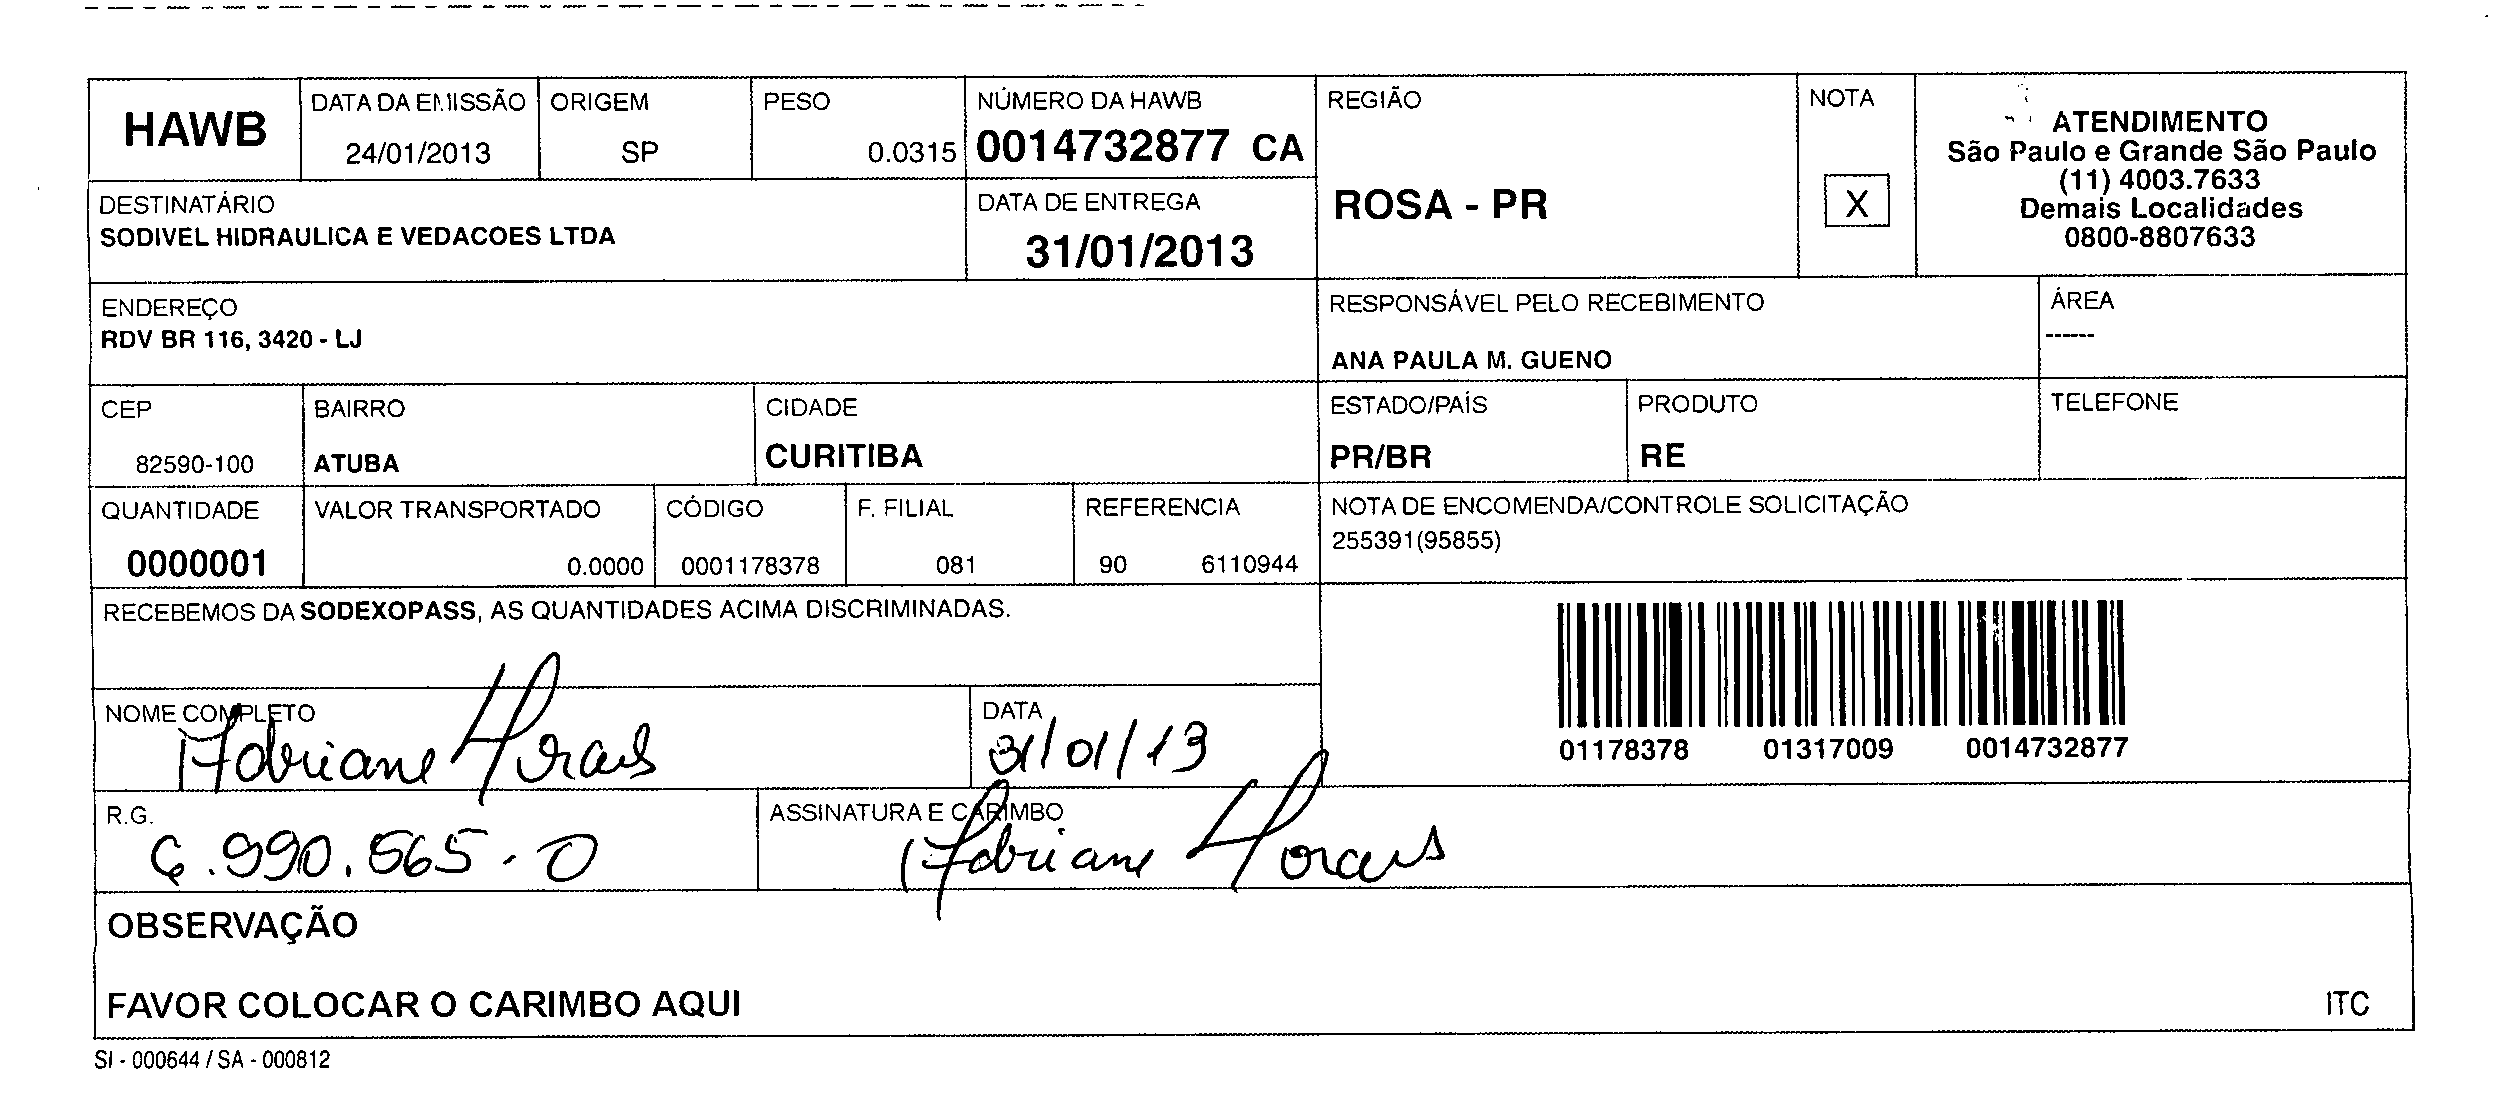 HAWB
DATA DA EMISSÃO
24/01/2013
ORIGEM
SP
PESO
0.0315
NÚMERO DA HAWB
0014732877 CA
REGIÃO
ROSA - PR
NOTA
X
ATENDIMENTO
São Paulo e Grande São Paulo
(11) 4003.7633
Demais Localidades
0800-8807633
DESTINATÁRIO
SODIVEL HIDRAULICA E VEDACOES LTDA
DATA DE ENTREGA
31/01/2013
ENDEREÇO
RDV BR 116, 3420 - LJ
RESPONSÁVEL PELO RECEBIMENTO
ANA PAULA M. GUENO
ÁREA
------
CEP
82590-100
BAIRRO
ATUBA
CIDADE
CURITIBA
ESTADO/PAÍS
PR/BR
PRODUTO
RE
TELEFONE
QUANTIDADE
0000001
VALOR TRANSPORTADO
0.0000
CÓDIGO
0001178378
F. FILIAL
081
REFERENCIA
90 6110944
NOTA DE ENCOMENDA/CONTROLE SOLICITAÇÃO
255391(95855)
RECEBEMOS DA SODEXOPASS, AS QUANTIDADES ACIMA DISCRIMINADAS.
01178378 01317009 0014732877
NOME COMPLETO
Adriane Moraes
DATA
31/01/13
R.G.
6.990.565-0
ASSINATURA E CARIMBO
Adriane Moraes
OBSERVAÇÃO
FAVOR COLOCAR O CARIMBO AQUI
ITC
SI - 000644 / SA - 000812